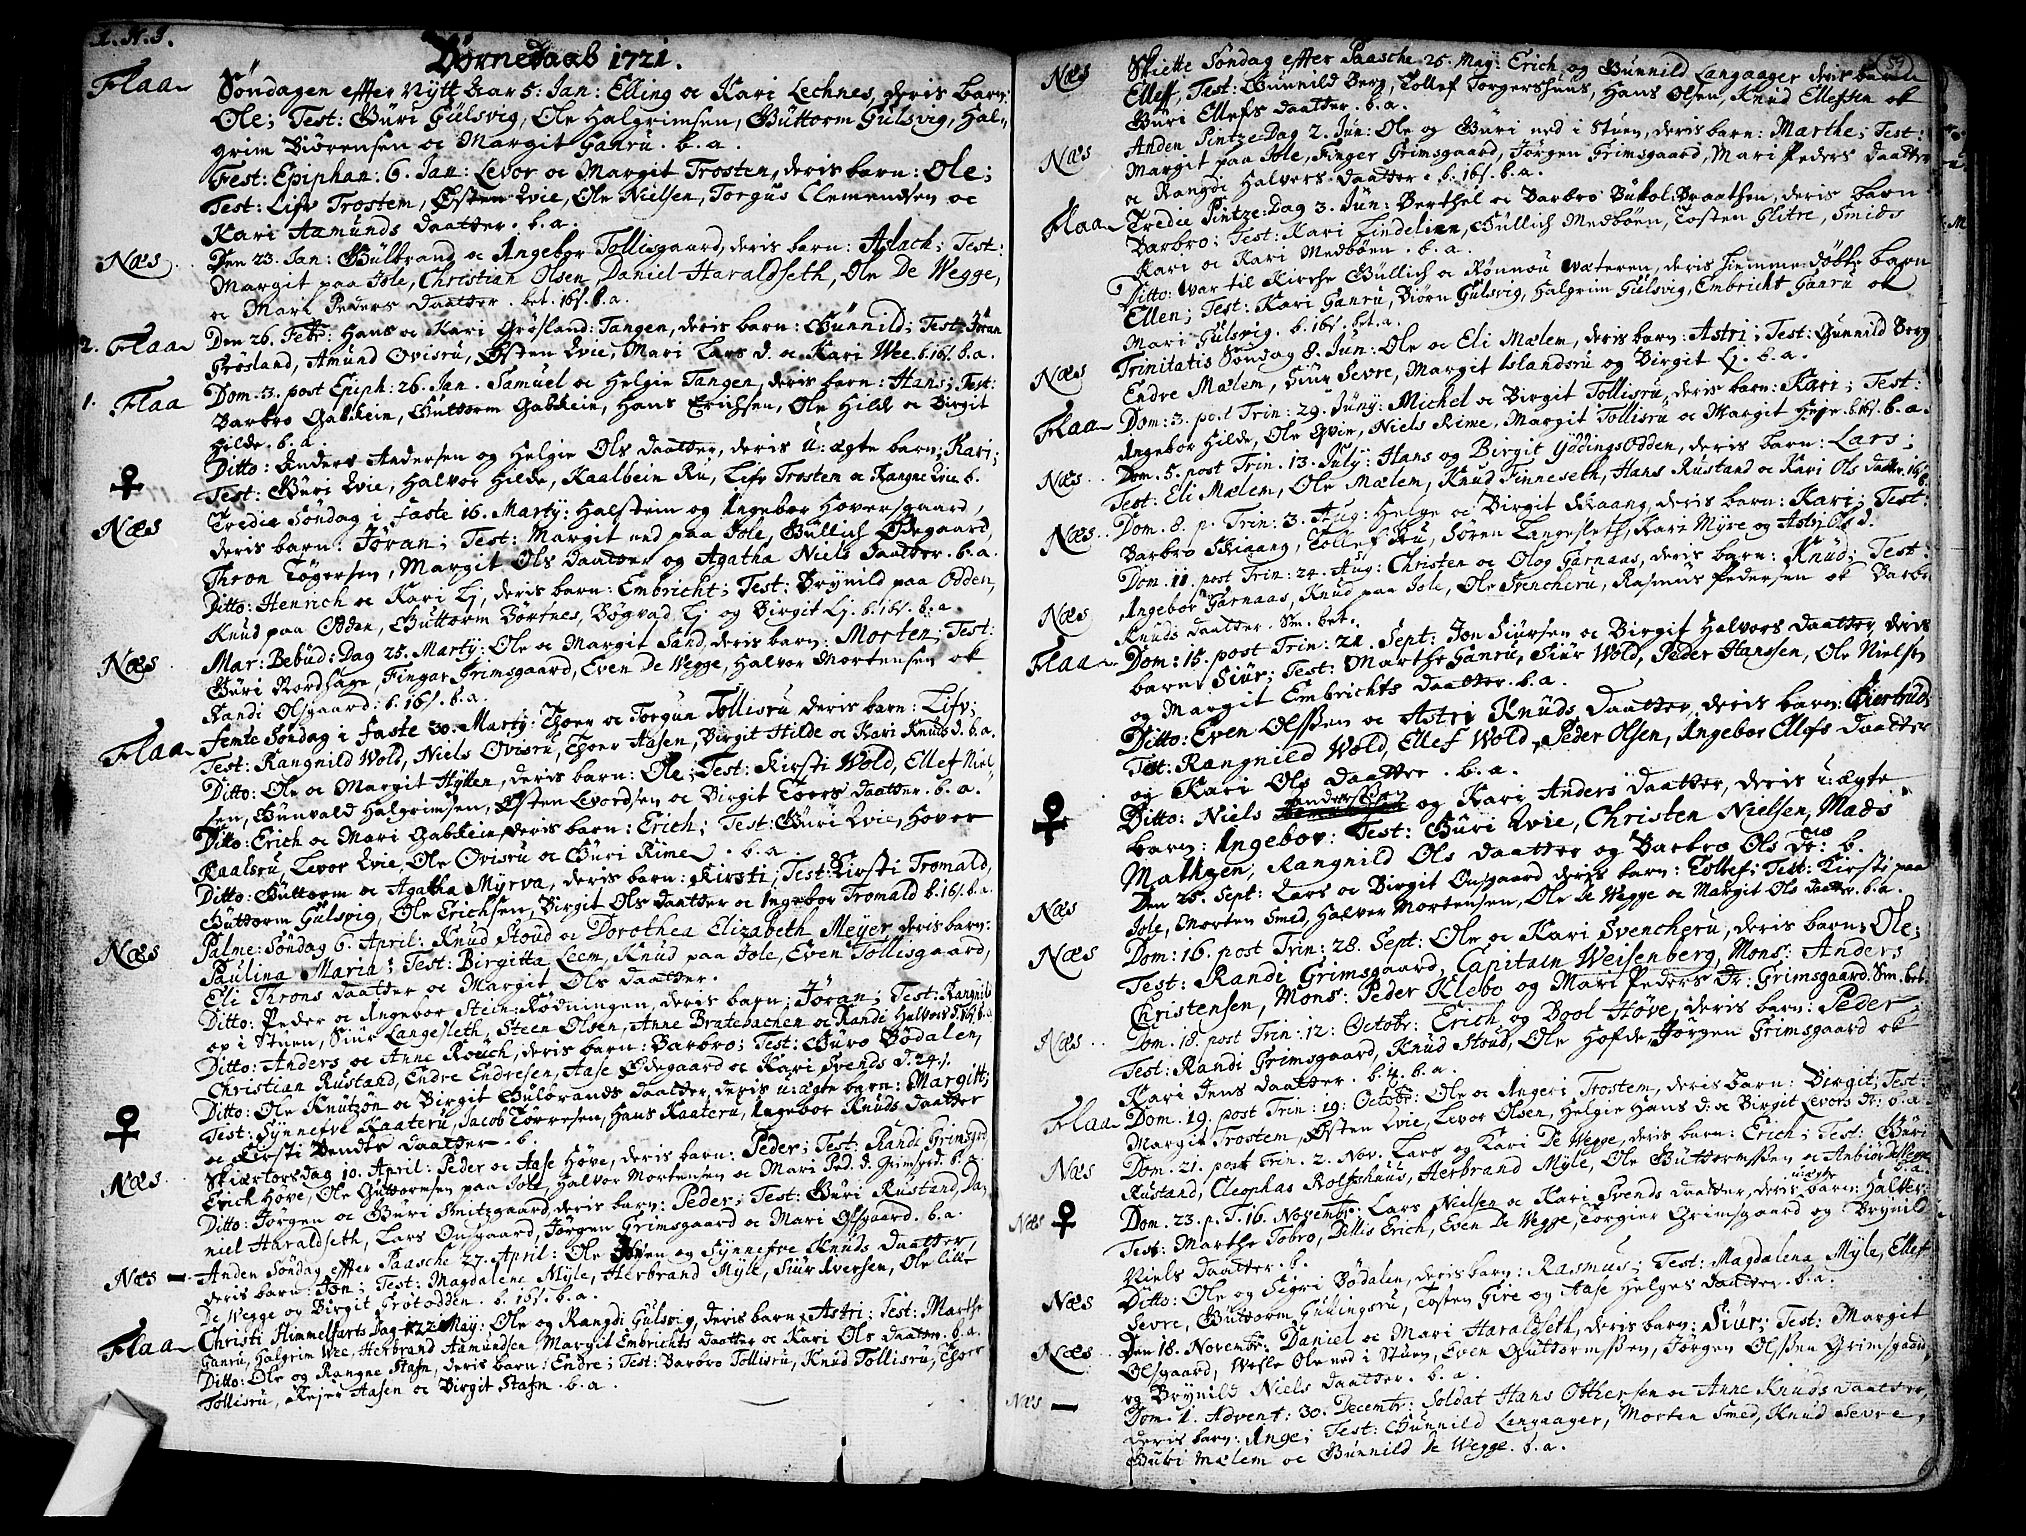 I. N. J.
Børnedaab 1721.
Flaa
Søndagen effter Nÿtt Aar 5. Jan: Elling oc Kari Lechnes, deris barn:
Ole; Test: Gúri Gúlsvig, Ole Halgrimsen, Gúttorm Gúlsvig, Hal-
grim Biørensen oc Margit Ganrú. b. a.
Fest: Epiphan: 6. Jan: Levor oc Margit Trosten, deris barn: Ole;
Test: Lifv Trostem, Østen Qvie, Ole Nielsen, Torgus Clemendsen oc
Kari Aamúnds daatter. b. a.
Næs
Den 23. Jan: Gúlbrand oc Angebor Tollisgaard, deris barn: Aslach; Test:
Margit paa Jole, Christian Olsen, Daniel Haraldseth, Ole De Wegge,
oc Mari Peders daatter. bet. 16s. b. a.
2. Flaa
Den 26. Febr: Hans oc Kari Grøsland: Tangen, deris barn: Gúnnild; Test: Jøran
Grøsland, Amúnd Ovisrú, Østen Qvie, Mari Lars d. oc Kari Wee. b. 16s. b. a.
1. Flaa
Dom. 3. post Epiph: 26. Jan. Samuel oc Helgie Tangen, deris barn: Hans; Test:
Barbro Gabkein, Gúttorm Gabkein, Hans Erichsen, Ole Hilde oc Birgit
Hilde. b. a.
♀
Ditto: Anders Andersen og Helgie Ols daatter, deris ú: ægte barn: Kari;
Test: Gúri Qvie, Halvor Hilde, Kaalbein Rú, Lifv Trostem oc Rangne Qvie. b.
Næs
Tredie Søndag i faste 16. Martÿ: Halstein og Angebor Hovensgaard,
deris barn: Jøran; Test: Margit ned paa Jole, Gúllich Ødegaard,
Thron Tøgersen, Margit Ols daatter og Agatha Niels daatter. b. a.
Ditto: Henrich oc Kari Lj, deris barn: Embricht; Test: Brÿnild paa Odden,
Knud paa Odden, Gúttorm Børtnes, Bøgvad Lj og Birgit Lj. b. 16s. b. a.
Næs
Mar: Bebúd: Dag 25. Martÿ: Ole oc Margit Sand, deris barn: Morten; Test:
Gúri Nordhage, Fingar Grimsgaard, Even De Wegge, Halvor Mortensen ok
Randi Olsgaard: b. 16s. b. a.
Flaa
Femte Søndag i faste 30. Martÿ: Thoer oc Torgun Tollisrú deris barn: Lifv;
Test: Rangnild Wold, Niels Ovisrú, Thoer Aasen, Birgit Hilde oc Kari Knuds d. b. a.
Ditto: Ole oc Margit Hÿtten, deris barn: Ole; Test: Kirsti Wold, Ellef Niel-
sen, Gúnvald Halgrimsen, Østen Levordsen oc Birgit Toers daatter. b. a.
Ditto: Erich oc Mari Gabkein, deris barn: Erich; Test: Gúri Qvie, Hover
Kaalsrú, Levor Qvie, Ole Ovisrú oc Gúri Rime. b. a.
Ditto: Gúttorm oc Agatha Mÿrva, deris barn: Kirsti; Test: Kirsti Tromald,
Gúttorm Gúlsvig, Ole Erichsen, Birgit Ols daatter oc Ingebor Tromald b. 16s. b. a.
Næs
Palme: Søndag 6. April: Knud Stoúd oc Dorothea Elizabeth Meÿer deris barn:
Paulina Maria; Test: Birgitta Leem, Knud paa Jole, Even Tollisgaard,
Eli Throns daatter oc Margit Ols daatter.
Ditto: Peder oc Angebor Stein: Rødningen, deris barn: Jøran; Test: Rangnild
op i Stúen, Siúr Langesleth, Steen Olsen, Anne Bratebachen oc Randi Halvors d.
Ditto: Anders oc Anne Roúch, deris barn: Barbro; Test: Gúro Bødalen,
Christian Rustand, Endre Endresen, Aase Ødegaard oc Kari Svends d. 24s.
♀
Ditto: Ole Knútzøn oc Birgit Gúlbrands daatter, deris ú: ægte barn: Margitt;
Test: Sÿnnefve Kaaterú, Jacob Tørresen, Hans Kaaterú, Angebor Knuds daatter
oc Kirsti Bendts daatter. b.
Næs
Skiærtorsdag 10. April: Peder oc Aase Høve, deris barn: Peder; Test: Randi Grimsgrd,
Erich Høve, Ole Guttormsen paa Jole, Halvor Mortensen oc Mari Ped. d. Grimsgrd. b. a.
Ditto: Jørgen oc Gúri Snitzgaard, deris barn: Peder; Test: Gúri Rústand, Da-
niel Haraldseth, Lars Onsgaard, Jørgen Grimsgaard oc Mari Olsgaard. b. a.
Næs —
Anden Søndag effter Paasche 27. April: Ole og Sÿnnefve Knuds daatter,
deris barn: Jon; Test: Magdalena Mÿle, Herbrand Mÿle, Siúr Iversen, Ole lille
De Wegge og Birgit Grotodden. b. 16s. b. a.
Flaa
Christi Himmelfarts Dag 22 Maÿ: Ole og Rangdi Gúlsvig, deris barn: Astri; Test: Marthe
Ganrú, Halgrim Wee, Herbrand Aamundsen Margit Embrichts daatter oc Kari Ols daatter. b. a.
Ditto: Ole og Rangne Stafn, deris barn: Endre; Test: Barbro Tollisrú, Knud Tollisrú, Thoer
Tollisrú, Rejer Aasen oc Birgit Stafn. b. a.
59
Næs
Skiette Søndag effter Paasche 25. Maÿ: Erich og Gúnnild Langaager deris barn
Elleff, Test: Gúnnild Berg, Tollef Torgershuus, Hans Olsen, Knud Ellefsen ok
Gúri Ellefs daatter. b. a.
Næs
Anden Pintze: Dag 2. Jun: Ole og Gúri ned i Stúen, deris barn: Marthe; Test:
Margit paa Jole, Finger Grimsgaard, Jørgen Grimsgaard, Mari Peders daatter
oc Rangdi Halvors daatter. b. 16s. b. a.
Flaa
Tredie Pintze: Dag 3. Jun: Berthel oc Barbro Búkol: Braathen, deris barn
Barbro; Test: Kari Lindelien, Gúllich Medbøen, Tosten Glitre, Smids
Kari oc Kari Medbøen. b. a.
Ditto: war til Kirche Gúllich oc Rønnou Wæteren, deris hiemme: døbte barn
Ellen; Test: Kari Ganrú, Biørn Gúlsvig, Halgrim Gúlsvig, Embricht Ganrú ok
Mari Gúlsvig. b. 16s. bet. a.
Næs
Trinitatis Søndag 8. Jun: Ole oc Eli Mælem, deris barn: Astri; Test: Gunnild Berg
Endre Mælem, Siúr Sevre, Margit Islandsrú og Birgit Lj. b. a.
Flaa
Dom: 3. post Trin: 29. Junÿ: Michel oc Birgit Tollisrú, deris barn: Kari; Test:
Angebor Hilde, Ole Qvie, Niels Rime, Margit Tollisrú oc Margit Heje. b. 16s. b. a.
Næs
Dom. 5. post Trin. 13. Julÿ: Hans og Birgit ÿddingsOdden, deris barn: Lars;
Test: Eli Mælem, Ole Mælem, Knud Finneseth, Hans Rustand oc Kari Ols datter. 16s. b.
Næs
Dom. 8. p. Trin: 3. Aug: Helge oc Birgit Skaang, deris barn: Kari; Test:
Barbro Skiaang, Tollef Rú, Søren Langesleth, Kari Mÿre og Astj Ols d.
Næs
Dom: 11. post Trin: 24. Aug: Christen oc Olog Garnaas, deris barn: Knud; Test:
Angebor Garnaas, Knud paa Jole, Ole Svencherú, Rasmus Pedersen ok Barbro
Knuds daatter. Sm. bet.
Flaa
Dom: 15. post Trin: 21. Sept: Jon Siursen oc Birgit Halvors daatter, deris
barn: Siúr; Test: Marthe Ganrú, Siúr Wold, Peder Hanssen, Ole Nielsen
og Margit Embrichts daatter. b. a.
Ditto: Even Olssen oc Astri Knúds daatter, deris barn: Giertrúd;
Test: Rangnild Wold, Ellef Wold, Peder Olsen, Angebor Ellefs daatter
og Kari Ols daatter. b. a.
♀
Ditto: Niels Anderssen og Kari Anders daatter, deris ú: ægte
barn: Ingebor: Test: Gúri Qvie, Christen Nielsen, Mads
Mathzen, Rangnild Ols daatter og Barbro Ols dr: b.
Næs
Den 25. Sept: Lars oc Birgit Onsgaard deris barn: Tollef; Test: Kirsti paa
Jole, Morten Smed, Halvor Mortensen, Ole De Wegge oc Margit Ols daatter. b. a.
Næs
Dom: 16. post Trin: 28. Sept: Ole oc Kari Svencherú, deris barn: Ole;
Test: Randi Grimsgaard, Capitain Weisenberg, Mons: Anders
Christensen, Mons: Peder Klebo og Mari Peders Dr: Grimsgaard. Sm. bet.
Næs
Dom. 18. post Trin: 12: Octobr: Erich og Bool Høve, deris barn: Peder
Test: Randi Grimsgaard, Knud Stoúd, Ole Hofde, Jørgen Grimsgaard ok
Kari Jens daatter. b. b. a.
Flaa
Dom: 19. post Trin: 19: Octobr: Ole oc Angeri Trostem, deris barn: Birgit; Test:
Margit Trostem, Østen Qvie, Levor Olsen, Helgie Hans d: oc Birgit Levors dr: b. a.
Næs
Dom. 21. post Trin. 2. Nov. Lars og Kari De Wegge, deris barn: Erich; Test: Gúri
Rustand, Cleophas Rolfshuus, Herbrand Mÿle, Ole Gúttormssen oc Anbiør de Wegge
b. a.
Næs ♀
Dom. 23. p. T. 16. Novembr: Lars Nielsen oc Kari Svends daatter, deris uægte barn: Halvor;
Test: Marthe Tobro, Pellis Erich, Even De Wegge, Torgier Grimsgaard og Brÿnild
Niels daatter. b.
Næs
Ditto: Ole og Sigri Bødalen, deris barn: Rasmus; Test: Magdalena Mÿle, Ellef
Sevre, Gúttorm Gúllingsrú, Tosten Gire og Aase Helges daatter. b. a.
Næs
Den 18. Novembr: Daniel oc Mari Haraldseth, deris barn: Siúr; Test: Margit
Olsgaard, Wesle Ole ned i Stúen, Even Gúttormssen, Jørgen Olssen Grimsgaard
og Brÿnild Niels daatter. b. a.
Næs —
Dom. 1. Advent: 30. Decembr: Soldat Hans Ottersen oc Anne Knuds daatter,
deris barn: Ange; Test: Gúnnild Langaager, Morten Smed, Knud Sevre,
Gúri Mælem oc Gúnnild De Wegge. b. a.